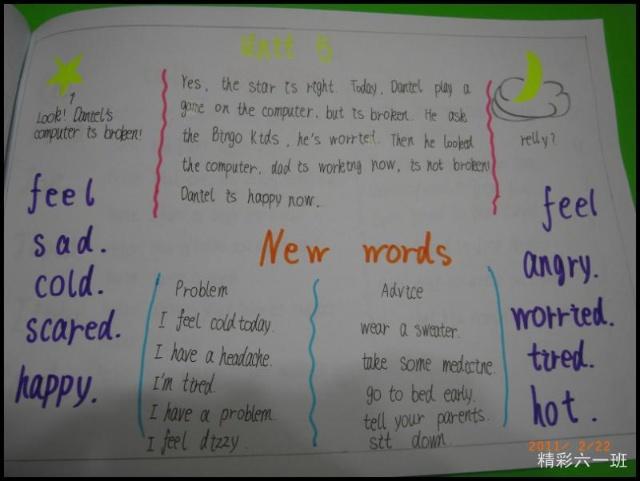 Unit 5
Look! Daniel's
computer is broken!
Yes, the star is right. Today, Daniel play a
game on the computer, but is broken. He ask
the Bingo Kids, he's worried. Then he looked
the computer, dad is working now, is not broken
Daniel is happy now.
relly?
feel
sad.
cold.
scared.
happy.
New words
Problem
I feel cold today.
I have a headache.
I'm tired.
I have a problem
I feel dizzy
Advice
wear a sweater.
take some medicine.
go to bed early.
tell your parents.
sit down.
feel
angry.
worried.
tired.
hot.
2011/ 2/22
精彩六一班